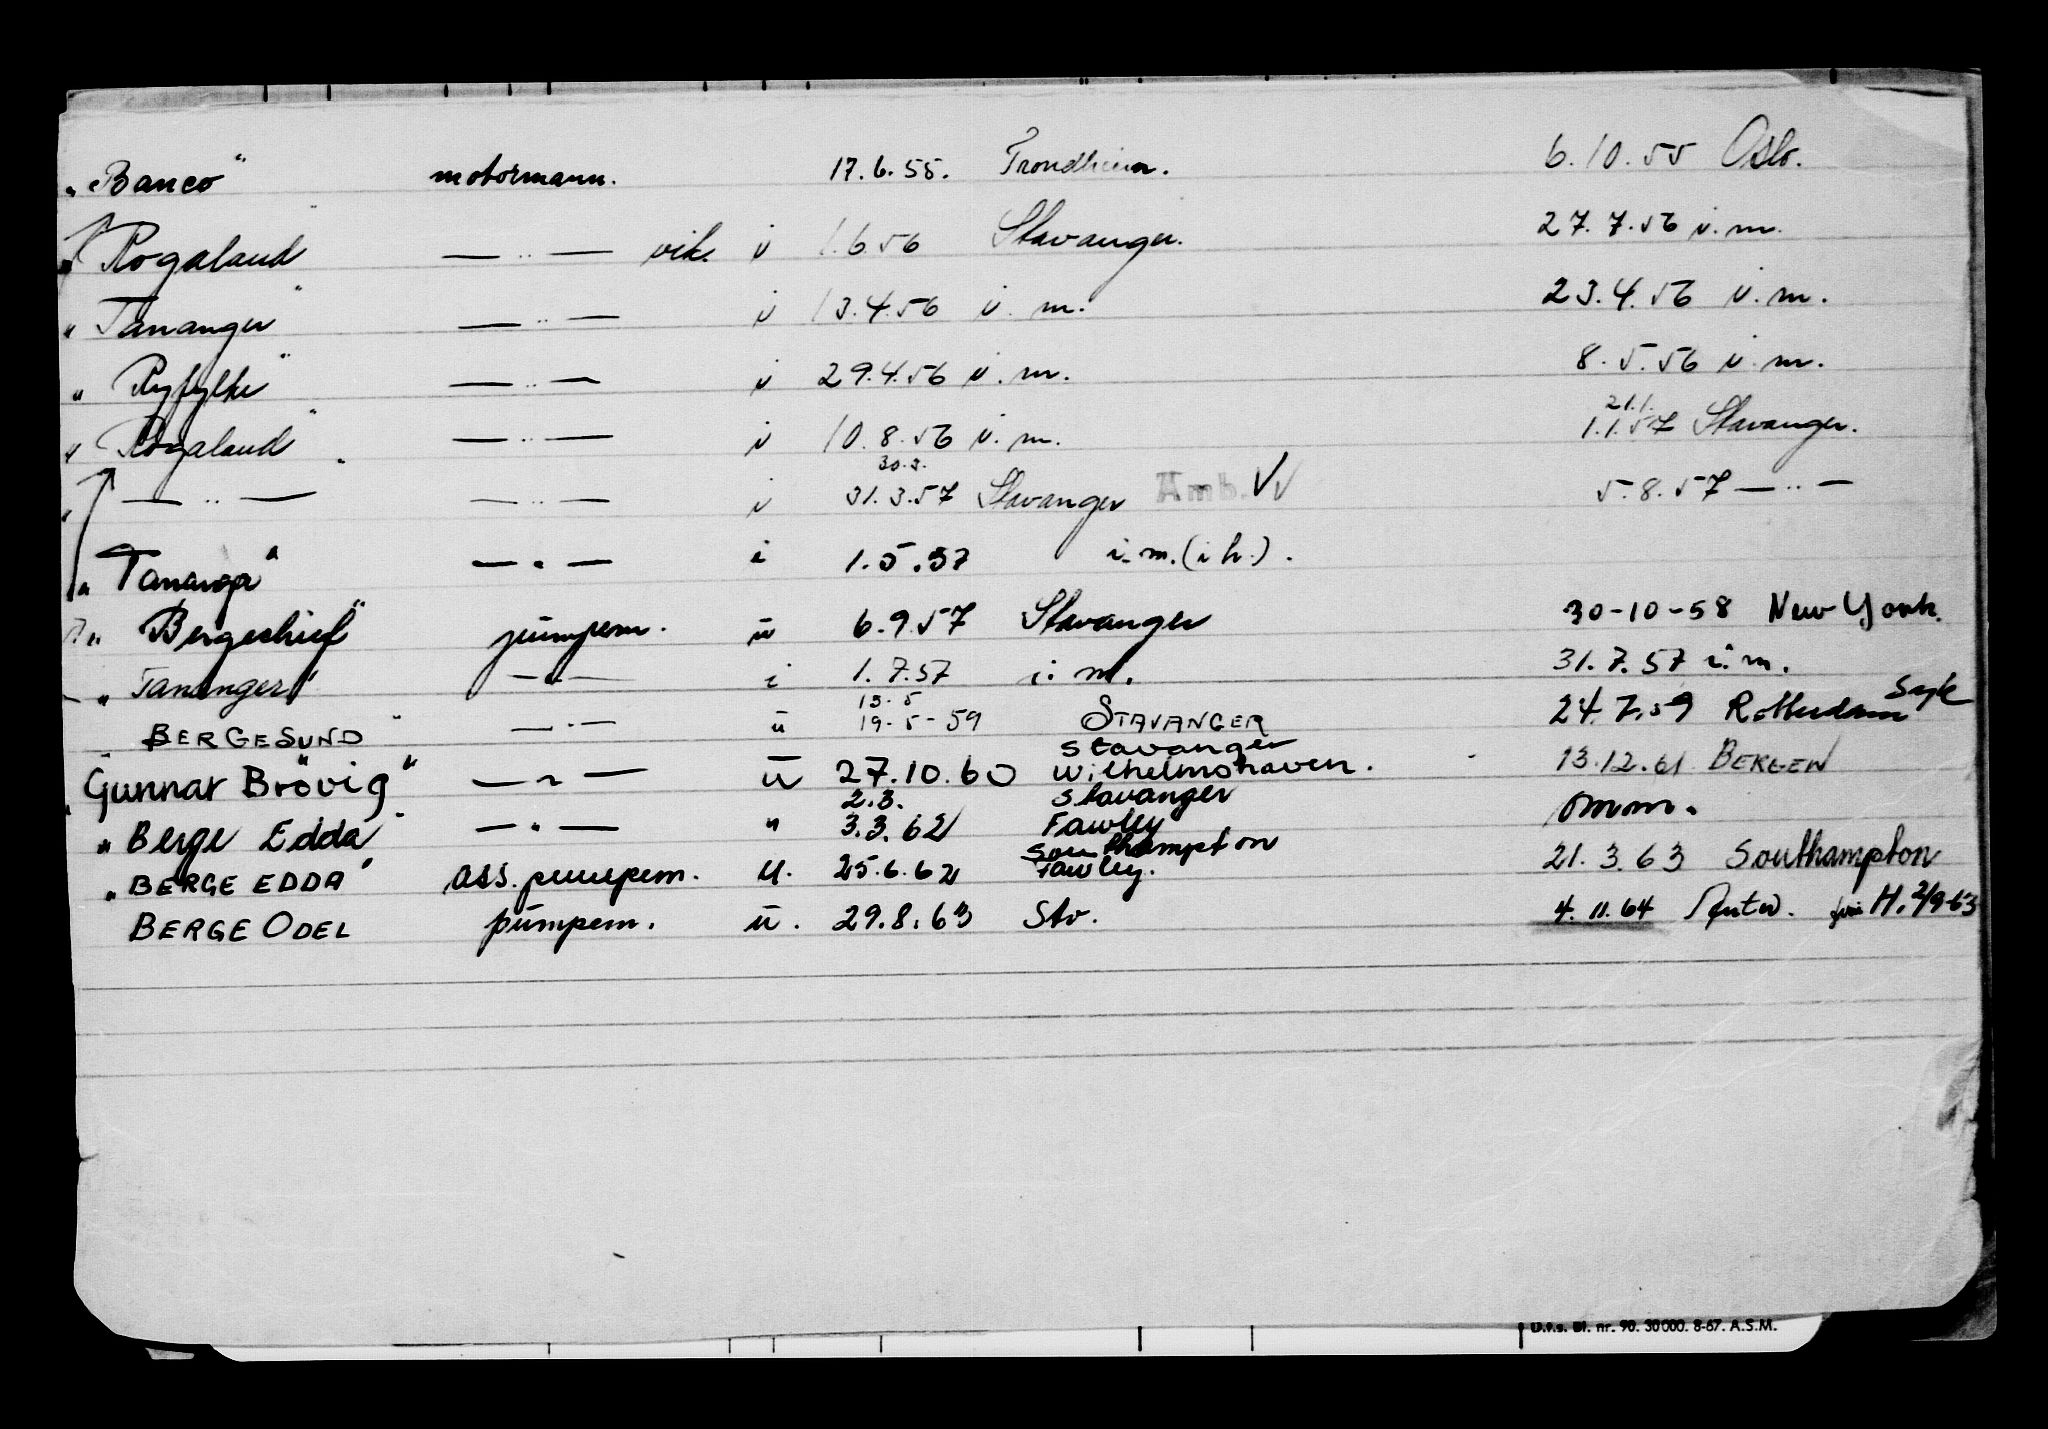 "Banco" motormann. 17.6.55. Trondheim. 6.10.55 Oslo.
"Rogaland" — " — vik. i 1.6.56 Stavanger. 27.7.56 i.m.
"Tananger" — " — i 13.4.56 i.m. 23.4.56 i.m.
"Ryfylke" — " — i 29.4.56 i.m. 8.5.56 i.m.
21.1.
"Rogaland" — " — i 10.8.56 i.m. 1.1.57 Stavanger.
30.3.
" — " — — " — i 31.3.57 Stavanger Amb. 5.8.57 — " —
"Tananger" — " — i 1.5.57 i.m. (i h.).
"Bergechief" pumpem. u 6.9.57 Stavanger 30-10-58 New York.
"Tananger" — " — i 1.7.57 i.m. 31.7.57 i.m.
13.5
BERGESUND" — " — u 19-5-59 STAVANGER 24.7.59 Rotterdam Syk
Stavanger
"Gunnar Brövig" — " — u 27.10.60 Wilhelmshaven. 13.12.61 BERGEN
2.3. Stavanger
"Berge Edda" — " — " 3.3.62 Fawley omm.
Southampton
"BERGE EDDA" ass. pumpem. u. 25.6.62 Fawley. 21.3.63 Southampton
BERGE ODEL pumpem. u. 29.8.63 Stv. 4.11.64 Antw. H. 2/9-63
U.t.s. Bl. nr. 90. 30000. 8-67. A.S.M.